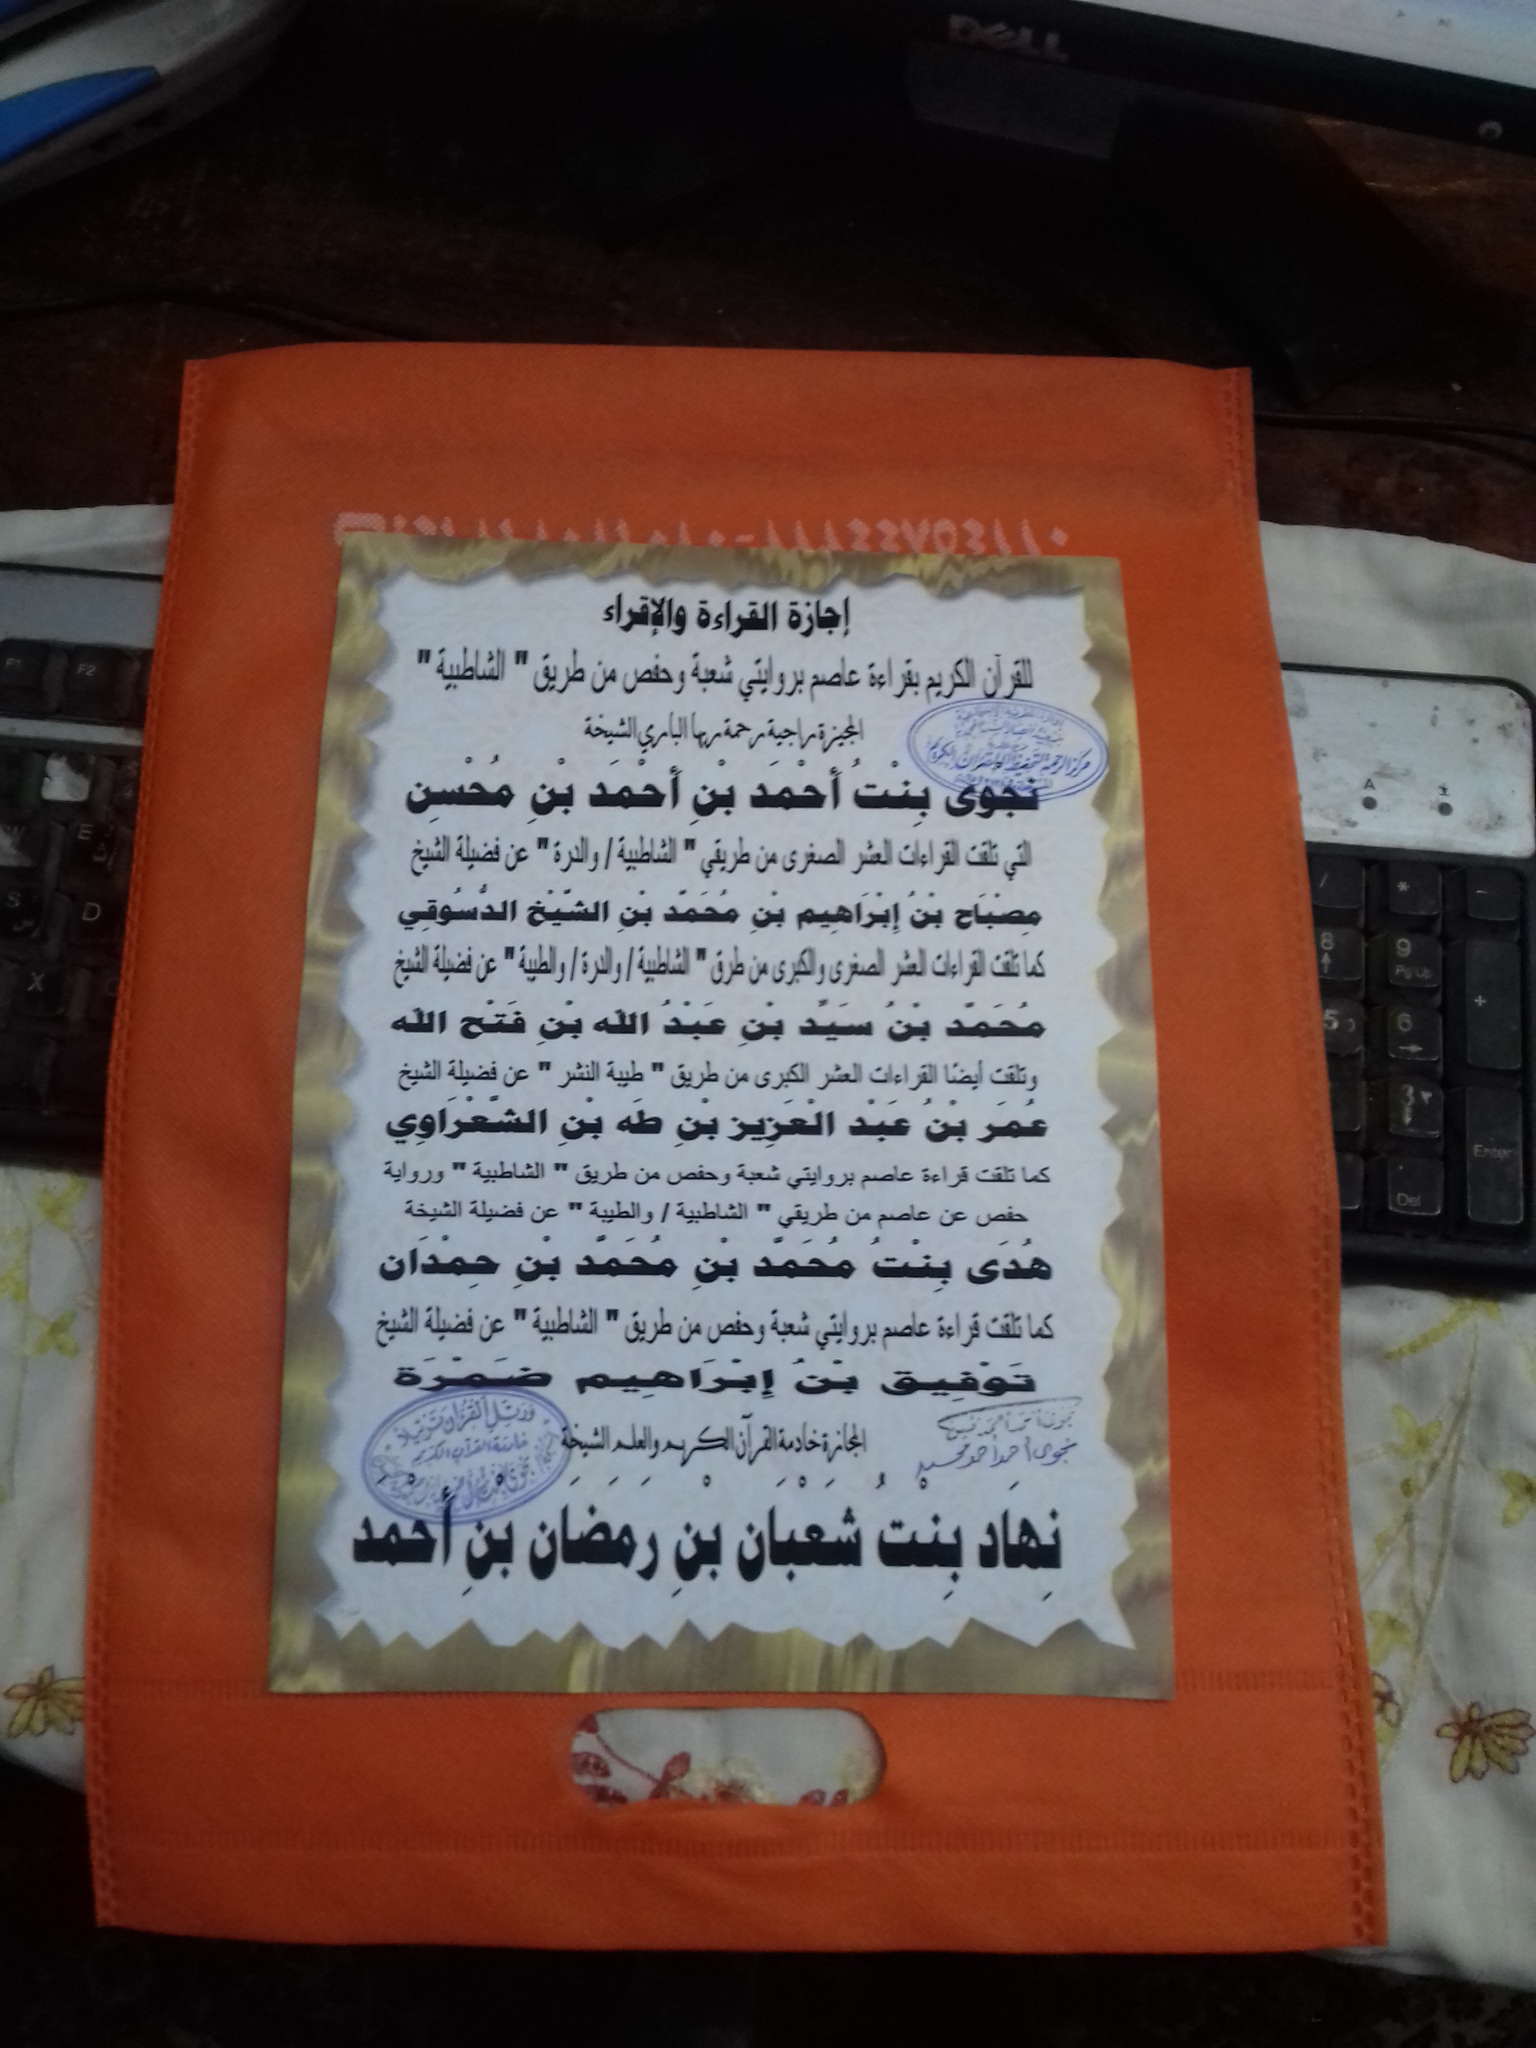 DELL
إجازة القراءة والإقراء
للقرآن الكريم بقراءة عاصم بروايتي شعبة وحفص من طريق " الشاطبية "
المجيزة راجية رحمة ربها الباري الشيخة
نَجْوَى بِنْتُ أَحْمَدَ بْنِ أَحْمَدَ بْنِ مُحْسِنِ
التي تلقت القراءات العشر الصغرى من طريقي " الشاطبية / والدرة " عن فضيلة الشيخ
مِصْبَاح بْنُ إِبْرَاهِيم بْنِ مُحَمَّد بْنِ الشَّيْخ الدُّسُوقِي
كما تلقت القراءات العشر الصغرى والكبرى من طرق " الشاطبية / والدرة / والطيبة " عن فضيلة الشيخ
مُحَمَّد بْنُ سَيِّد بْنِ عَبْدُ الله بْنِ فَتْح الله
وتلقت أيضًا القراءات العشر الكبرى من طريق " طيبة النشر " عن فضيلة الشيخ
عُمَر بْنُ عَبْد الْعَزِيز بْنِ طَه بْنِ الشَّعْرَاوِي
كما تلقت قراءة عاصم بروايتي شعبة وحفص من طريق " الشاطبية " ورواية
حفص عن عاصم من طريقي " الشاطبية / والطيبة " عن فضيلة الشيخة
هُدَى بِنْتُ مُحَمَّد بْنِ مُحَمَّد بْنِ حِمْدَان
كما تلقت قراءة عاصم بروايتي شعبة وحفص من طريق " الشاطبية " عن فضيلة الشيخ
تَوْفِيق بْنُ إِبْرَاهِيم ضَمْرَة
المجازة خادمة القرآن الكريم والعلم الشيخة
نجوى أحمد أحمد محسن
نِهَاد بِنْتُ شَعْبَان بْنِ رَمَضَان بْنِ أَحْمَد
ورتل القرآن ترتيلا
خادمة القرآن الكريم
F1
F2
E
D
X
/
*
-
8
9
PgUp
+
5
6
3
Enter
Del
A